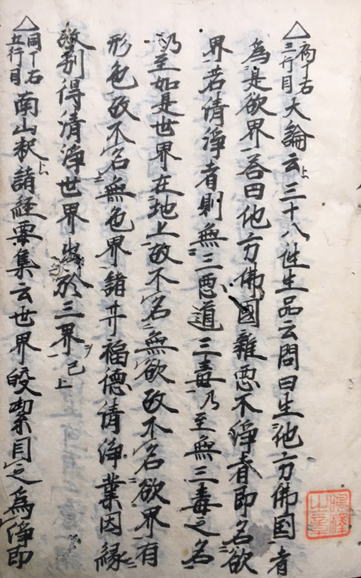 △ 初丁右三行目 大論云三十八往生品云問曰生他方佛國者
為是欲界答曰他方佛國雜惡不淨者即名欲
界若清淨者則無三惡道三毒乃至無三毒之名
乃至如是世界在地上故不名無欲故不名欲界有
形色故不名無色界諸井福德清淨業因緣
故別得清淨世界出於三界已上
△ 同丁右五行目 南山釈諸經要集云世界皎潔目之為淨即